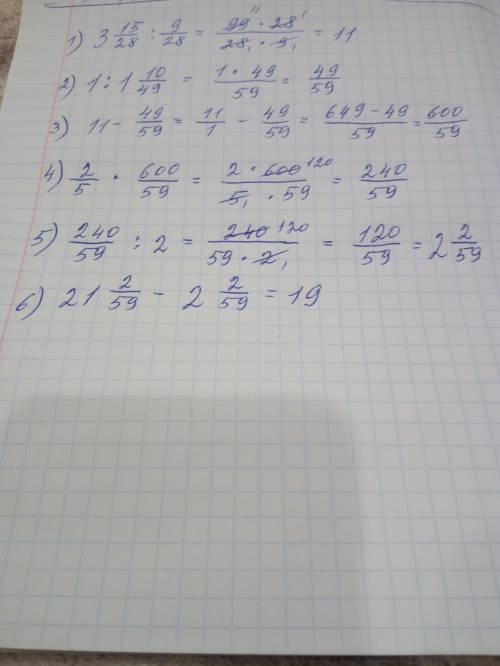 1) 3 15/28 : 9/28 = 99 11 · 28 1 / 28 1 · 9 1 = 11
2) 1 : 1 10/49 = 1 · 49 / 59 = 49/59
3) 11 - 49/59 = 11/1 - 49/59 = 649 - 49 / 59 = 600/59
4) 2/5 · 600/59 = 2 · 600 120 / 5 1 · 59 = 240/59
5) 240/59 : 2 = 240 120 / 59 · 2 1 = 120/59 = 2 2/59
6) 21 2/59 - 2 2/59 = 19